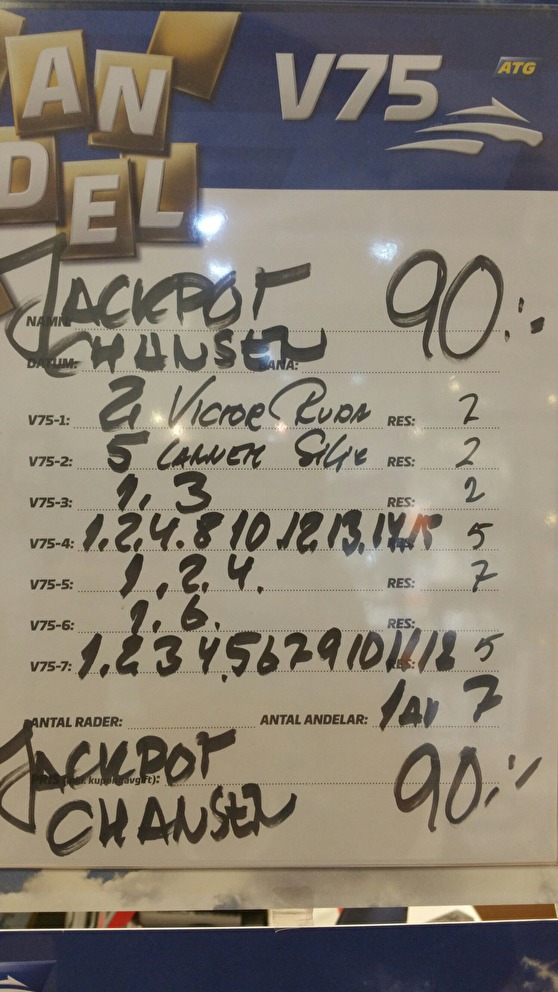 AN DEL
V75
ATG
JACKPOT 90:-
NAMN:
CHANSEN
DATUM: BANA:
V75-1: 2 VICTOR RUDA RES: 2
V75-2: 5 RES: 2
V75-3: 1, 3 RES: 2
V75-4: 1.2.4.8 10 .12.13.14.15 5
V75-5: 1, 2. 4. RES: 7
V75-6: 1. 6. RES:
V75-7: 1.2 3 4.5 6 7 9 10 11 12 RES: 5
ANTAL RADER: ANTAL ANDELAR: 1 AV 7
JACKPOT 90:-
PRIS (inkl. kupongavgift):
CHANSEN